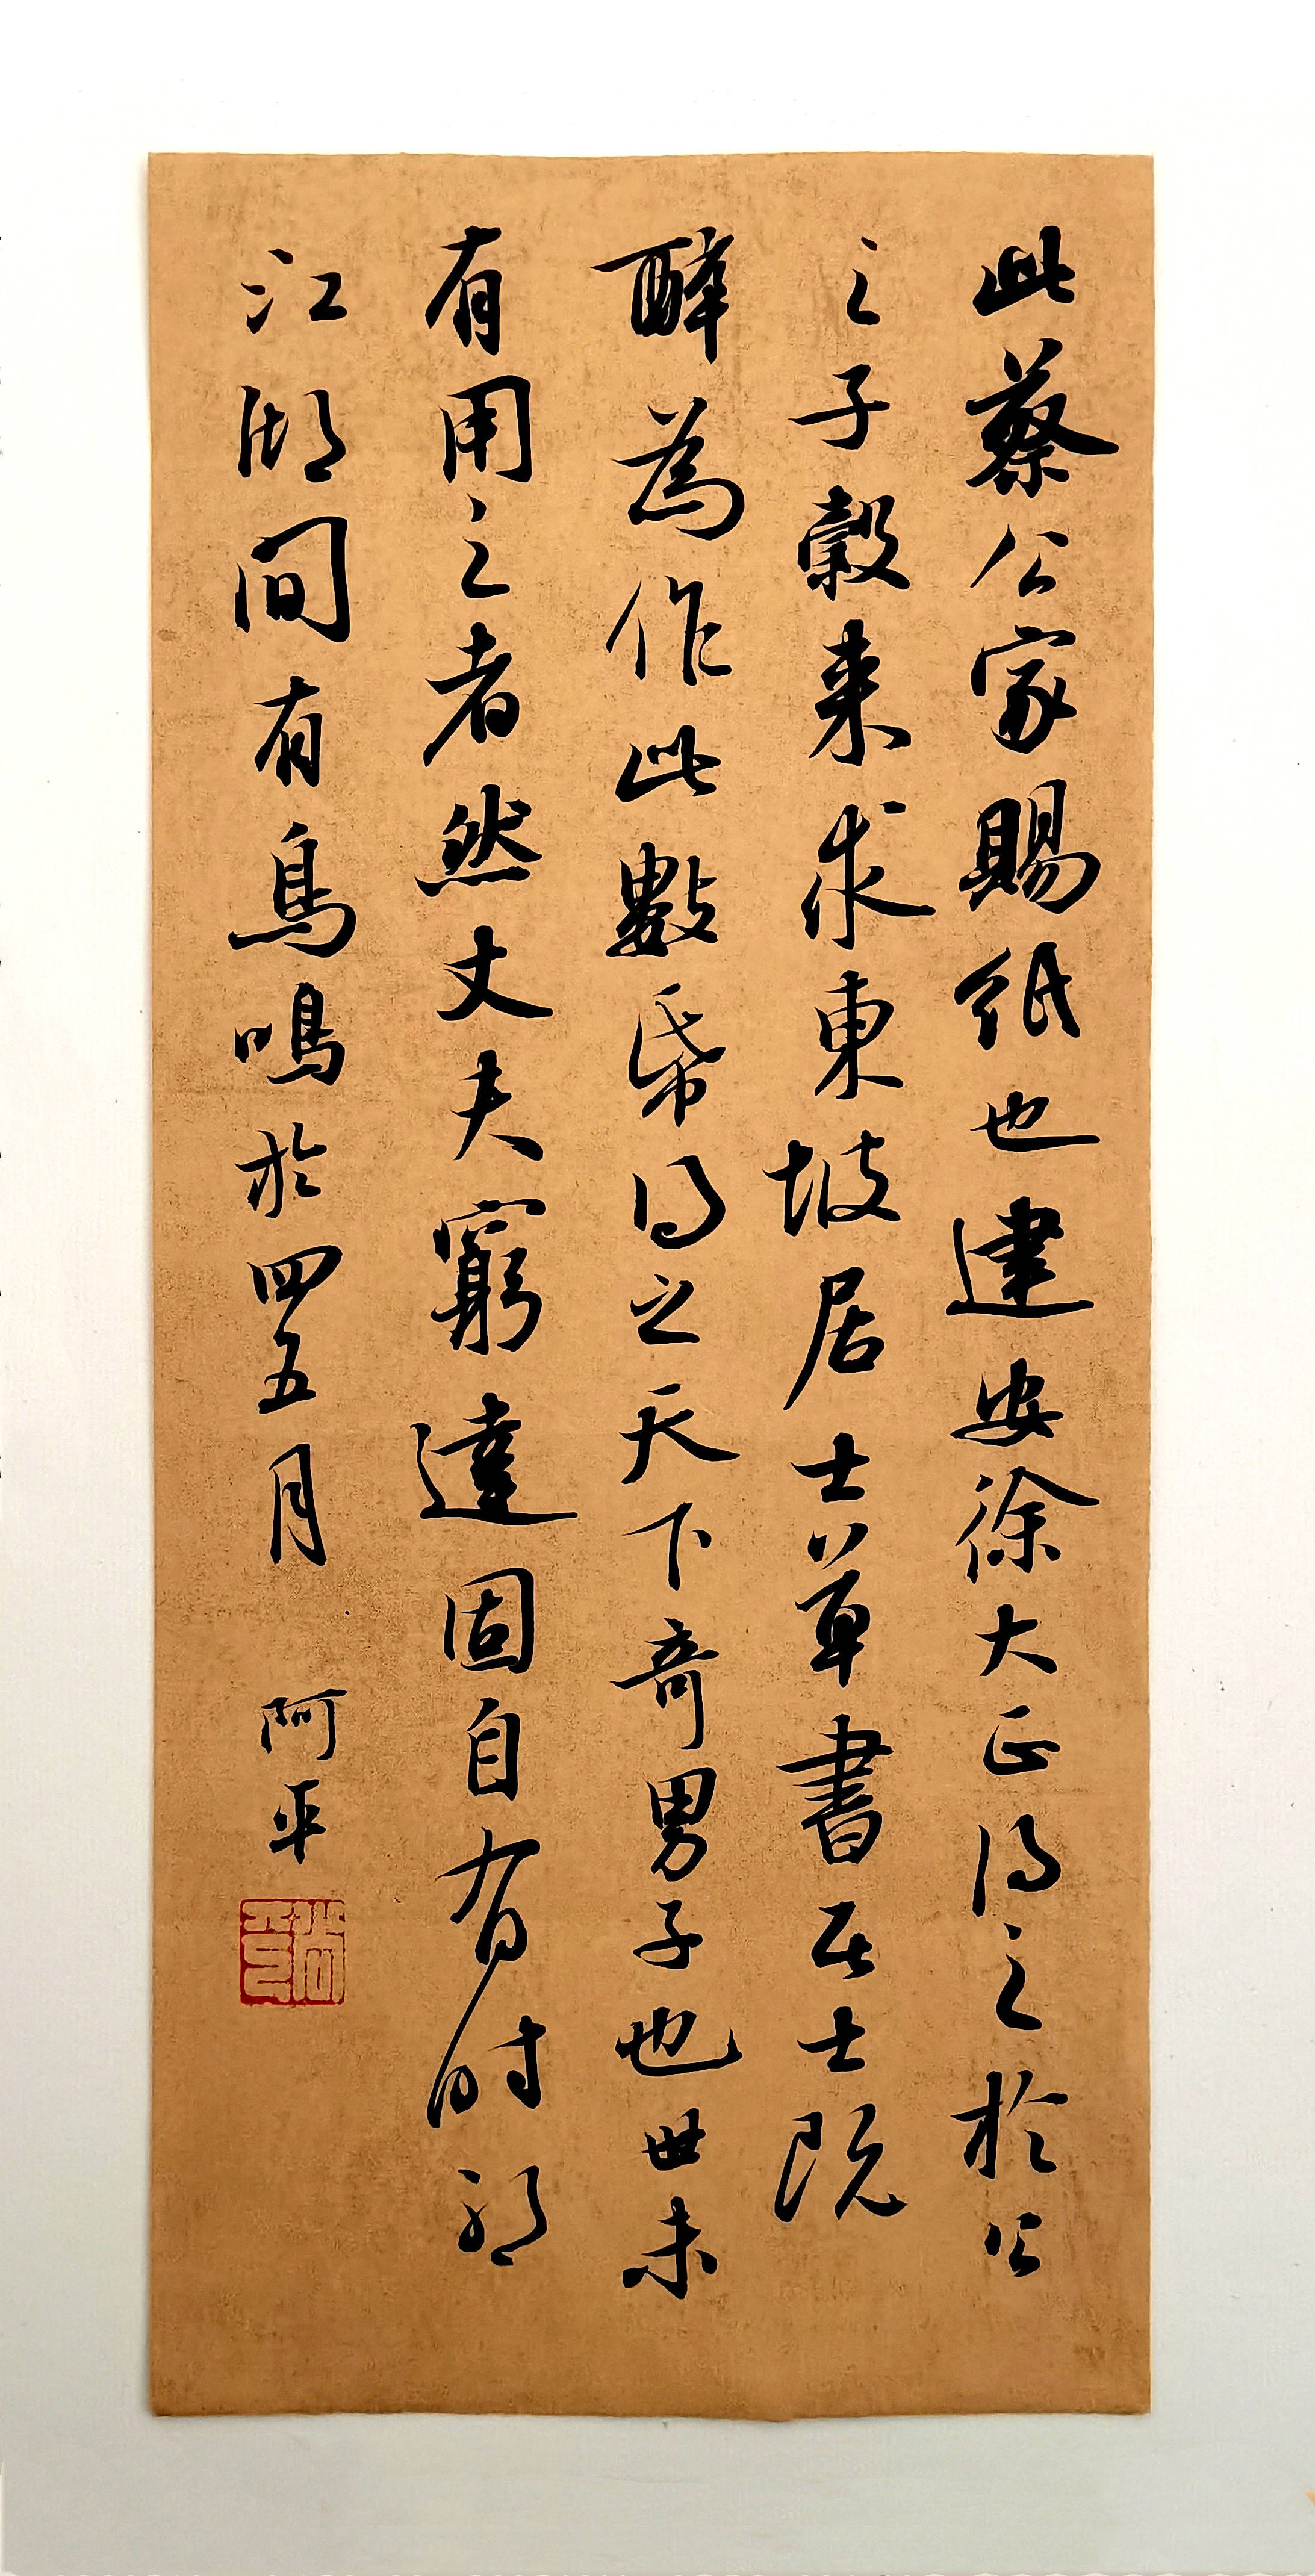 此蔡公家賜紙也建安徐大正得之於公
之子穀来求東坡居士草書居士既
醉為作此數紙得之天下奇男子也世未
有用之者然丈夫窮達固自有时耶
江湖间有鸟鳴於四五月
阿平